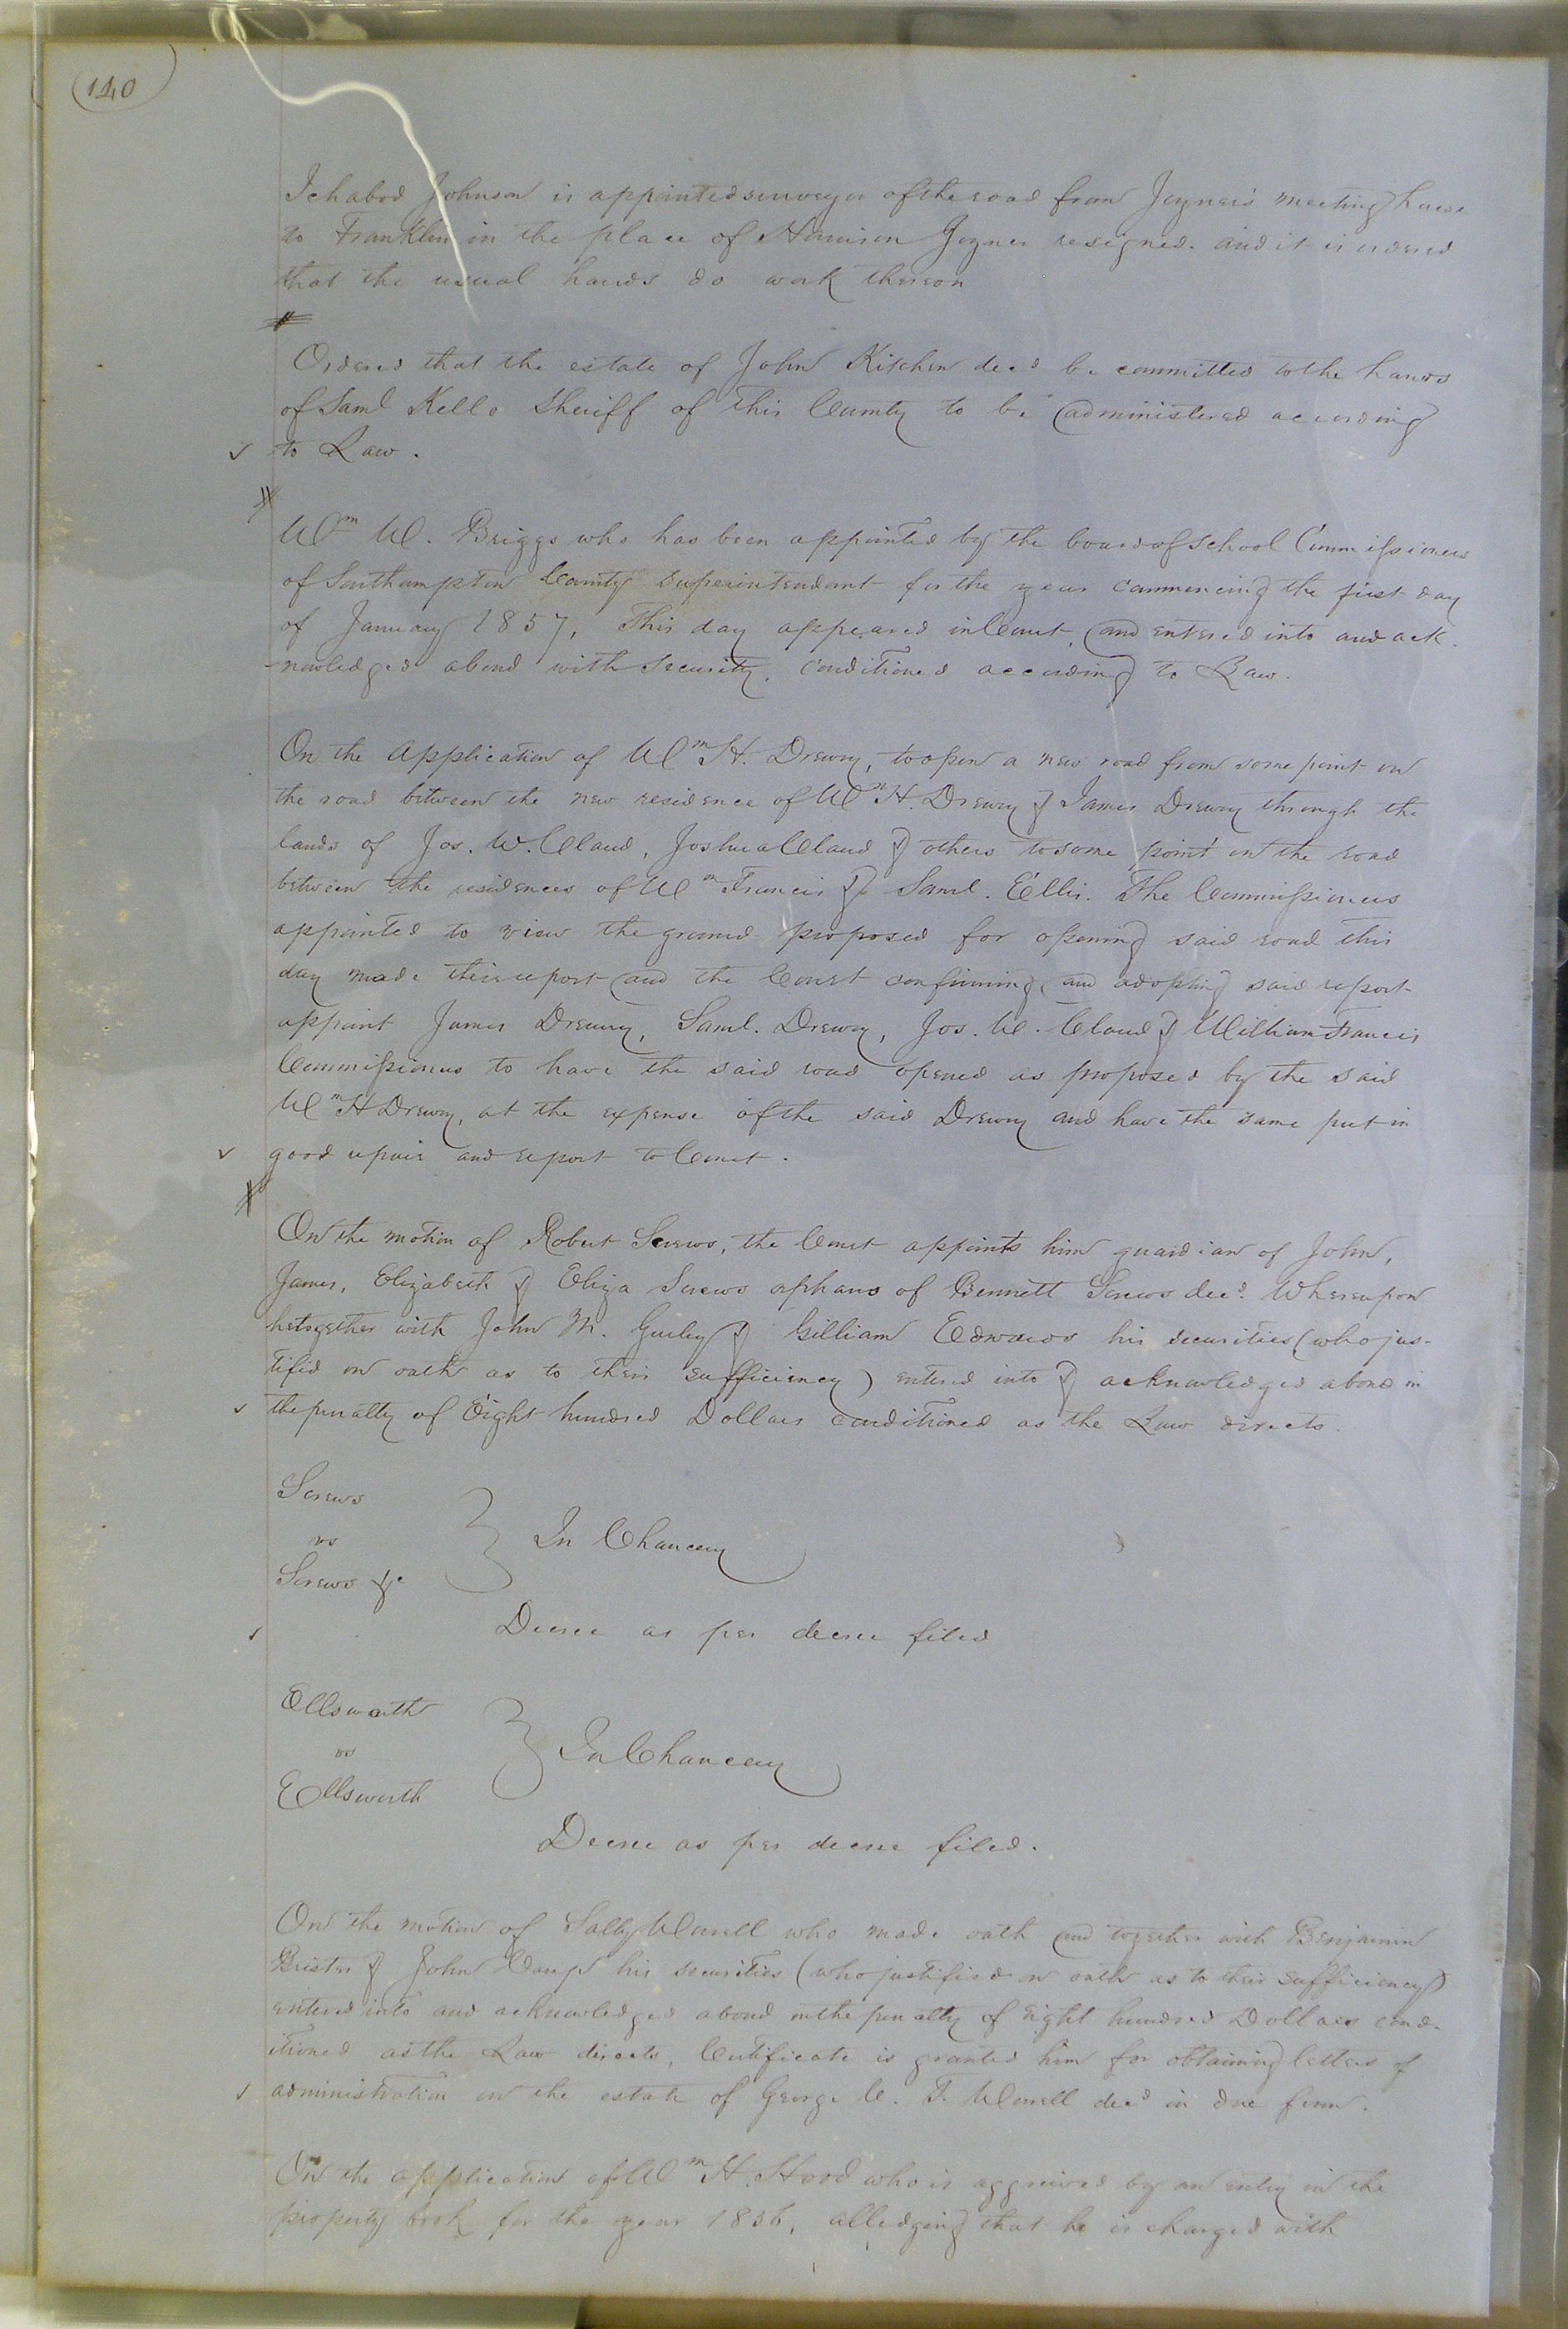 140
Ichabod Johnson is appointed surveyor of the road from Joyner's meeting house
to Franklin in the place of Harrison Joyner resigned. and it is ordered
that the usual hands do work thereon
Ordered that the estate of John Kitchen decd be committed to the hands
of Saml Kello Sheriff of this County to be administered according
to Law.
Wm W. Briggs who has been appointed by the board of School Commissioners
of Southampton County Superintendant for the year commencing the first day
of January 1857, This day appeared in Court, and entered into and ack
-nowledged a bond with security, conditioned according to Law.
On the Application of Wm H. Drewry, to open a new road from some point on
the road between the new residence of Wm H. Drewry & James Drewry through the
lands of Jos. W. Claud, Joshua Claud & others to some point on the road
between the residences of Wm Francis & Saml. Ellis. The Commissioners
appointed to view the ground proposed for opening said road this
day made their report and the Court confirming and adopting said report
appoint James Drewry, Saml. Drewry, Jos. W. Claud & William Francis
Commissioners to have the said road opened as proposed by the said
Wm H Drewry, at the expense of the said Drewry and have the same put in
good repair and report to Court.
On the motion of Robert Screws, the Court appoints him guardian of John,
James, Elizabeth & Eliza Screws orphans of Bennett Screws decd. Whereupon
he together with John M. Gurley & Gilliam Edwards his securities (who jus-
tified on oath as to their sufficiency) entered into & acknowledged a bond in
the penalty of Eight hundred Dollars conditioned as the Law directs.
Screws
vs
Screws &c
} In Chancery
Decree as per decree filed
Ellsworth
vs
Ellsworth
} In Chancery
Decree as per decree filed.
On the motion of Sally Worrell who made oath and together with Benjamin
Brister & John Camp his securities (who justified on oath as to their sufficiency)
entered into and acknowledged a bond in the penalty of eight hundred Dollars cond-
itioned as the Law directs, Certificate is granted him for obtaining letters of
administration on the estate of George W. T. Worrell decd in due form.
On the application of Wm H. Hood who is aggrieved by an entry in the
property book for the year 1856, alledging that he is charged with